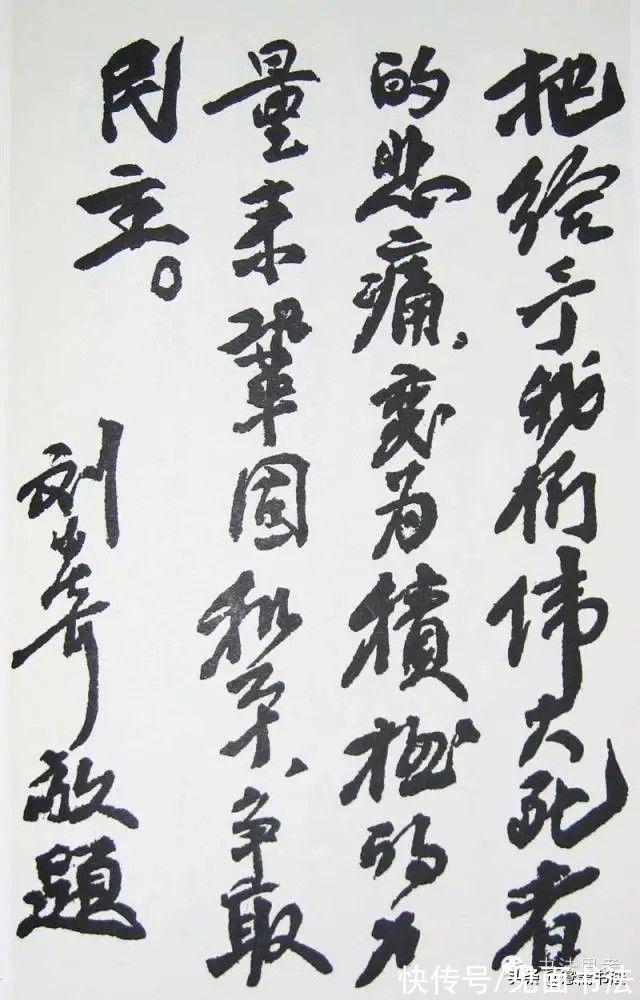 把给予我们伟大死者
的悲痛，变为积极的力
量来巩固和平、争取
民主。
刘少奇敬题
快传号/兜面书法